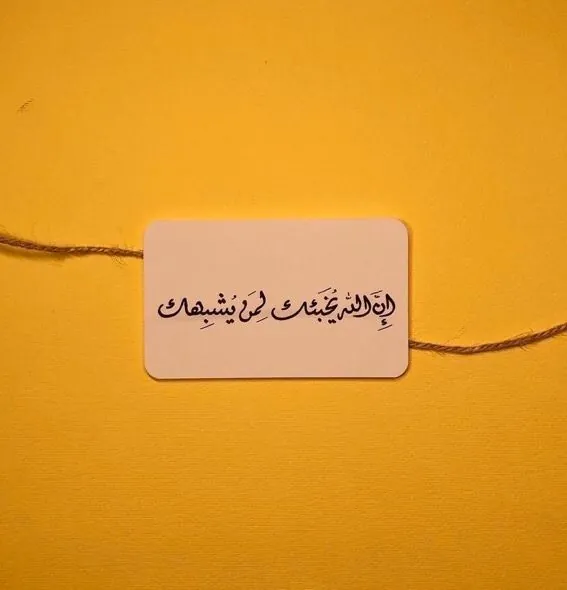 إِنَّ الله يُخَبئك لِمَن يُشبِهك